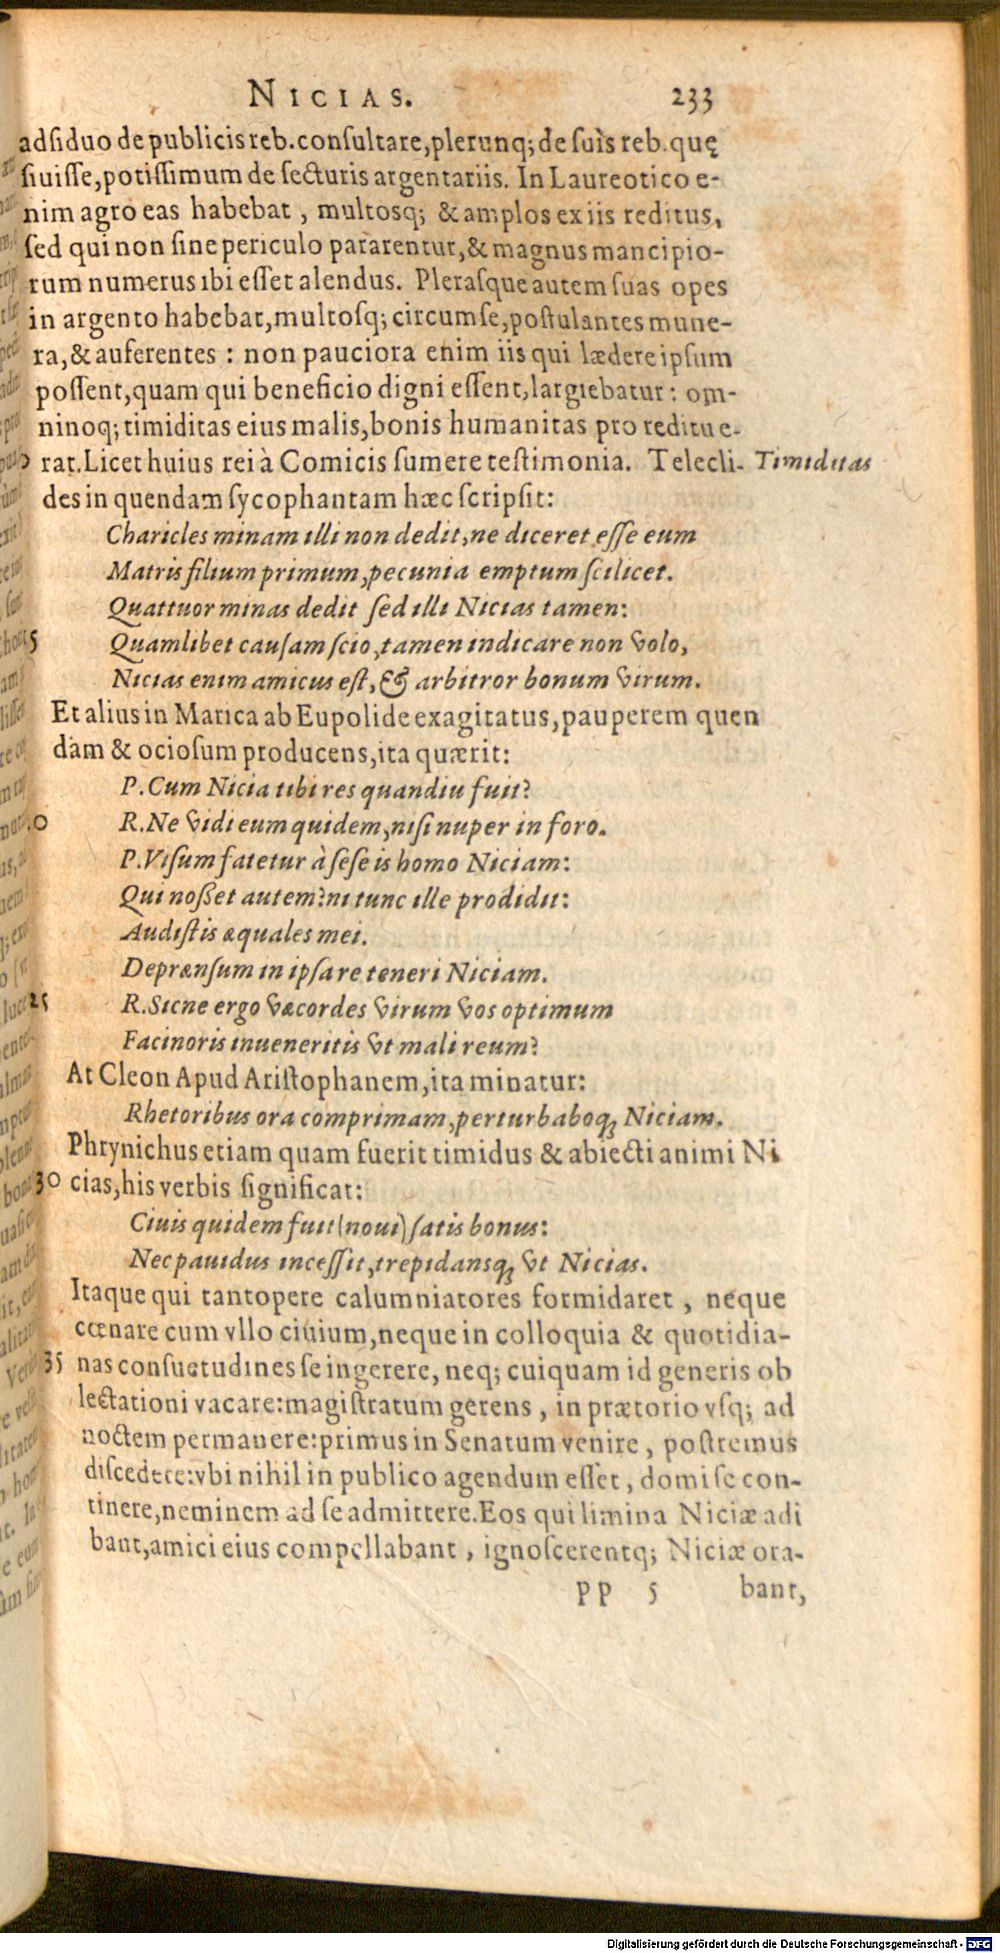 NICIAS. 233
adsiduo de publicis reb. consultare, plerunq; de suis reb. quę
siuisse, potissimum de secturis argentariis. In Laureotico e-
nim agro eas habebat, multosq; & amplos ex iis reditus,
sed qui non sine periculo pararentur, & magnus mancipio-
rum numerus ibi esset alendus. Plerasque autem suas opes
in argento habebat, multosq; circum se, postulantes mune-
ra, & auferentes: non pauciora enim iis qui lædere ipsum
possent, quam qui beneficio digni essent, largiebatur: om-
ninoq; timiditas eius malis, bonis humanitas pro reditu e-
rat. Licet huius rei à Comicis sumere testimonia. Telecli- Timiditas
des in quendam sycophantam hæc scripsit:
Charicles minam illi non dedit, ne diceret esse eum
Matris filium primum, pecunia emptum scilicet.
Quattuor minas dedit sed illi Nicias tamen:
5 Quamlibet causam scio, tamen indicare non volo,
Nicias enim amicus est, & arbitror bonum virum.
Et alius in Marica ab Eupolide exagitatus, pauperem quen
dam & ociosum producens, ita quærit:
P. Cum Nicia tibi res quandiu fuit?
R. Ne vidi eum quidem, nisi nuper in foro.
P. Visum fatetur à sese is homo Niciam:
Qui nosset autem? ni tunc ille prodidit:
Audistis æquales mei.
Deprænsum in ipsa re teneri Niciam.
25 R. Sicne ergo væcordes virum vos optimum
Facinoris inueneritis vt mali reum?
At Cleon Apud Aristophanem, ita minatur:
Rhetoribus ora comprimam, perturbaboq; Niciam.
Phrynichus etiam quam fuerit timidus & abiecti animi Ni
30 cias, his verbis significat:
Ciuis quidem fuit (noui) satis bonus:
Nec pauidus incessit, trepidansq; vt Nicias.
Itaque qui tantopere calumniatores formidaret, neque
cœnare cum vllo ciuium, neque in colloquia & quotidia-
35 nas consuetudines se ingerere, neq; cuiquam id generis ob
lectationi vacare: magistratum gerens, in prætorio vsq; ad
noctem permanere: primus in Senatum venire, postremus
discedere: vbi nihil in publico agendum esset, domi se con-
tinere, neminem ad se admittere. Eos qui limina Niciæ adi
bant, amici eius compellabant, ignoscerentq; Niciæ ora-
pp 5 bant,
Digitalisierung gefördert durch die Deutsche Forschungsgemeinschaft - DFG